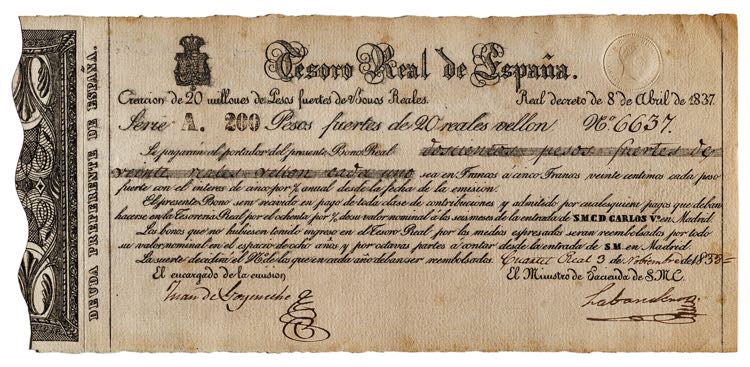 Tesoro Real de España.
Creacion de 20 millones de Pesos fuertes de Bonos Reales. Real decreto de 8 de Abril de 1837.
Serie A. 200 Pesos fuertes de 20 reales vellon Nº 6637.
Se pagarán al portador del presente Bono Real doscientos pesos fuertes de
veinte reales vellon cada uno sea en Francos a cinco Francos, veinte centimos cada peso
fuerte con el interes de cinco por % anual desde la fecha de la emision.
El presente Bono será recivido en pago de toda clase de contribuciones y admitido por cualesquiera pagos que deban
hacerse en la Tesoreria Real por el ochenta por % de su valor nominal a los seis meses de la entrada de S.M.C.D CARLOS Vº. en Madrid
Los bonos que no hubiesen tenido ingreso en el Tesoro Real por los medios espresados serán reembolsados por todo
su valor nominal en el espacio de ocho años y por octavas partes a contar desde la entrada de S.M. en Madrid
La suerte decidirá el Nº de los que en cada año deban ser reembolsados. Cuartel Real 3 de Noviembre de 1838=
El encargado de la emision El Ministro de Hacienda de S.M.C.
Juan de Goyeneche Labandero
DEUDA PREFERENTE DE ESPAÑA.